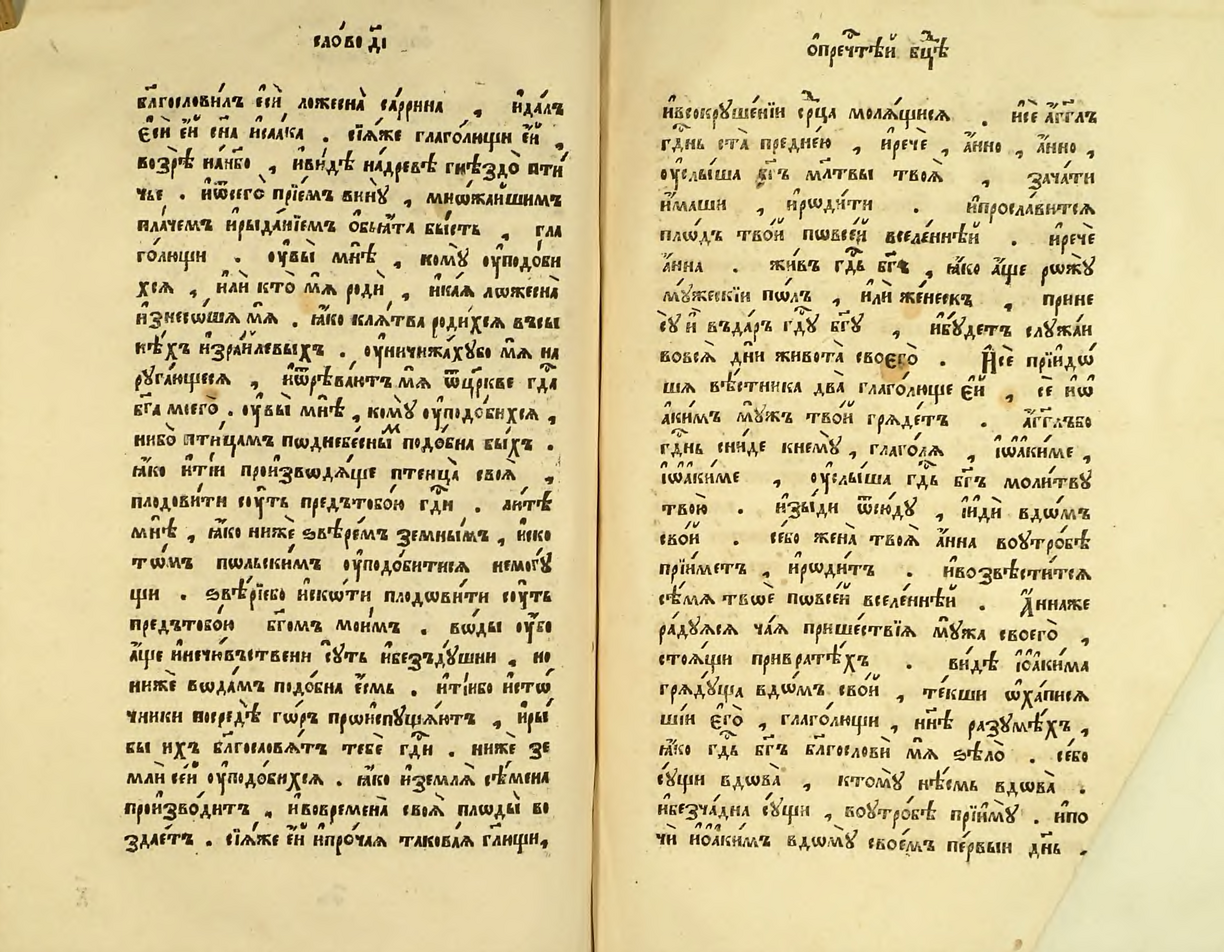 сло́во д҃і
бл҃гословилъ єсѝ ложеснѐ са́ррина , идалъ
єсѝ єй сн҃а исаа́ка . сїѧ́же глаго́лющи єй ,
возрѣ̀ на́нбо , иви́дѣ надревѣ̀ гнѣздо̀ пти
чье . иѿсегѡ̀ прїе́мъ винꙋ̀ , мнѡжа́ишимъ
пла́чемъ ирыда́нїемъ ѡбьѧ́та бы́сть , гла
го́лющи . оувы̀ мнѣ̀ , комꙋ̀ оуподо́би
хсѧ , илѝ кто̀ мѧ̀ родѝ , ика́ѧ ложеснѐ
изнесо́ша мѧ̀ . ꙗ́ко клѧ́тва роди́хсѧ въсы
нѣ́хъ изра́илевыхъ . оуничижа́хꙋбо мѧ̀ на
рꙋга́ющесѧ , иѿрѣва́ютъ мѧ̀ ѿцр҃кве гд҇а
бг҃а моегѡ̀ . оувы̀ мнѣ̀ , комꙋ̀ оуподо́бихсѧ ,
нибо пти́цамъ пѡднебе́снымъ подо́бна бы́хъ .
ꙗ́ко итїи произвѡдѧ́ще птенца̀ своѧ̀ ,
плодови́ти сꙋ́ть предътобо́ю гд҇и . лю́тѣ
мнѣ̀ , ꙗ́ко нижѐ ѕвѣре́мъ земны́мъ , иско
то́мъ польски́мъ оуподоби́тисѧ немогꙋ̀
щи . ѕвѣрїебо иско́ти плодови́ти сꙋ́ть
предътобо́ю бг҃омъ мои́мъ . во́ды оу́бо
а́ще инечю́вьствени сꙋ́ть ибезъдꙋ́шни , но
нижѐ вода́мъ подо́бна є́смь . итїибо исто́
чники посредѣ̀ го́ръ произпꙋща́ютъ , иры́
бы ихъ бл҃гословѧ́тъ тебѐ гд҇и . нижѐ зе
млѝ се́й оуподо́бихсѧ . ꙗ́ко иземлѧ̀ сѣ́мена
произво́дитъ , ивовремена̀ своѧ̀ плоды̀ во
здае́тъ . сїѧ́же єй ипро́чаѧ такова́ѧ гл҃ющи,
ѡпреч҇тѣй бц҃ѣ
ивсокрꙋше́нїи ср҃ца молѧ́щисѧ . исѐ а́гг҃лъ
гд҇нь ста̀ преднею , иречѐ , а́нно , а́нно ,
оуслы́ша бг҃ъ мл҃твы твоѧ̀ , зача́ти
и́маши , ироди́ти . ипросла́витсѧ
пло́дъ тво́й повсе́й вселе́ннѣй . иречѐ
а́нна . жи́въ гд҇ь бг҃ъ , ꙗ́ко а́ще рожꙋ̀
мꙋ́жескїи по́лъ , илѝ же́нескъ , прине
сꙋ̀ и въда́ръ гд҇ꙋ бг҃ꙋ , ибꙋ́детъ слꙋжа̀и
вовсѧ̀ дн҃и живота̀ своегѡ̀ . И҆сѐ прїидо́
ша вѣ́стника два̀ глаго́люще єй , сѐ ию
аки́мъ мꙋ́жъ тво́й грѧде́тъ . а́гг҃лъбо
гд҇нь сни́де кнемꙋ̀ , глаго́лѧ , іѡаки́ме ,
іѡаки́ме , оуслы́ша гд҇ь бг҃ъ моли́твꙋ
твою̀ . изы́ди ѿсю́дꙋ , иидѝ вдо́мъ
сво́й . себо жена̀ твоѧ̀ а́нна воутро́бѣ
прїи́метъ , ироди́тъ . ивозвѣсти́тсѧ
сѣ́мѧ твоѐ повсе́й вселе́ннѣй . А҆́ннаже
ра́дꙋѧсѧ ча́ѧ прише́ствїѧ мꙋ́жа своегѡ̀ ,
стоѧ́щи привратѣ́хъ . ви́дѣ іѡаки́ма
грѧдꙋ́ща вдо́мъ сво́й , те́кши ѡхапи́сѧ
ши́и єго̀ , глаго́лющи , нн҃ѣ разꙋмѣ́хъ ,
ꙗ́ко гд҇ь бг҃ъ благословѝ мѧ̀ ѕѣлѡ̀ . себо
сꙋ́щи вдова̀ , ктомꙋ̀ нѣ́смь вдова̀ .
ибезча́дна сꙋ́щи , воутро́бѣ прїимꙋ̀ . ипо
чѝ иѡаки́мъ вдомꙋ̀ свое́мъ пе́рвыи дн҃ь .